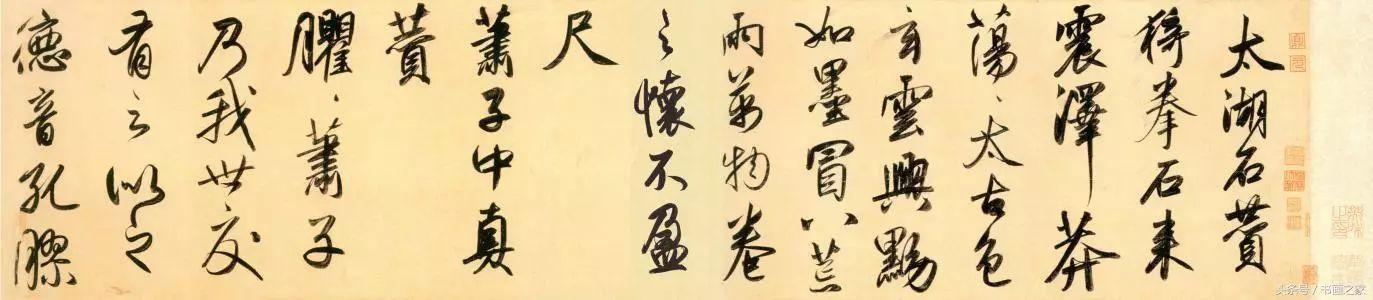 太湖石賛
猗拳石来
震澤莽
蕩、太古色
玄雲興黝
如墨冒八荒
雨萬物卷
之懷不盈
尺
蕭子中真
賛
臞、蕭子
乃我世交
有之似之
德音孔膠
头条号 / 书画之家